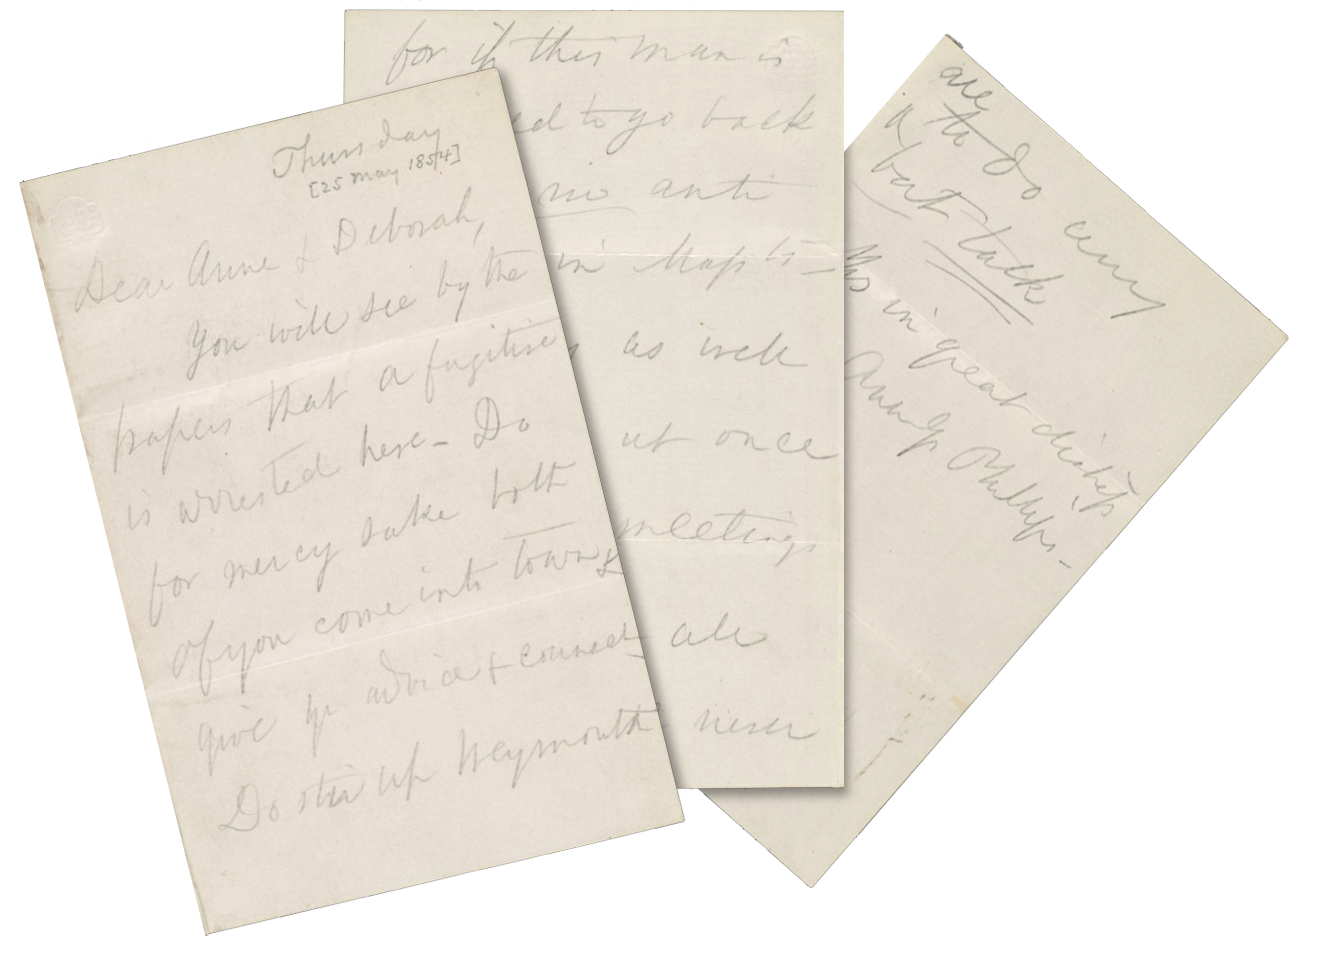 Thursday
[25 May 1854]
Dear Anne & Deborah,
You will see by the
papers that a fugitive
is arrested here – Do
for mercy sake both
of you come into town &
give yr advice & counsel
Do stir up Weymouth
for if this man is
ed to go back
no anti
in Massts –
as well
at once
meetings
all
never
are to do any
but talk
in great distress
Ann G Phillips –